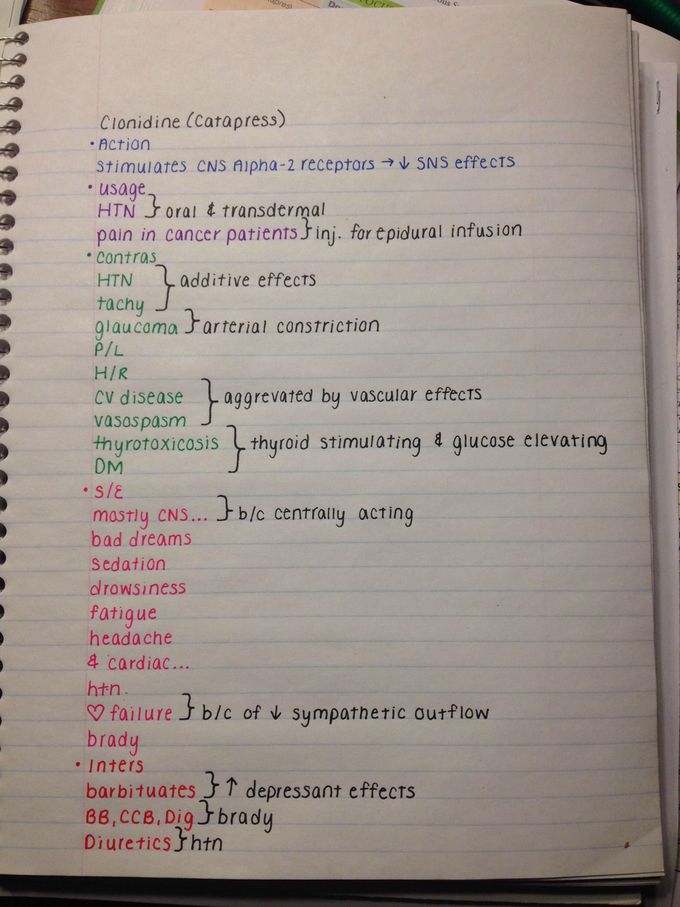 Clonidine (Catapress)
• Action
stimulates CNS Alpha-2 receptors → ↓ SNS effects
• usage
HTN } oral & transdermal
pain in cancer patients } inj. for epidural infusion
• contras
HTN } additive effects
tachy
glaucoma } arterial constriction
P/L
H/R
CV disease } aggrevated by vascular effects
vasospasm
thyrotoxicosis } thyroid stimulating & glucose elevating
DM
• S/E
mostly CNS... } b/c centrally acting
bad dreams
sedation
drowsiness
fatigue
headache
& cardiac...
htn
♡ failure } b/c of ↓ sympathetic outflow
brady
• Inters
barbituates } ↑ depressant effects
BB, CCB, Dig } brady
Diuretics } htn